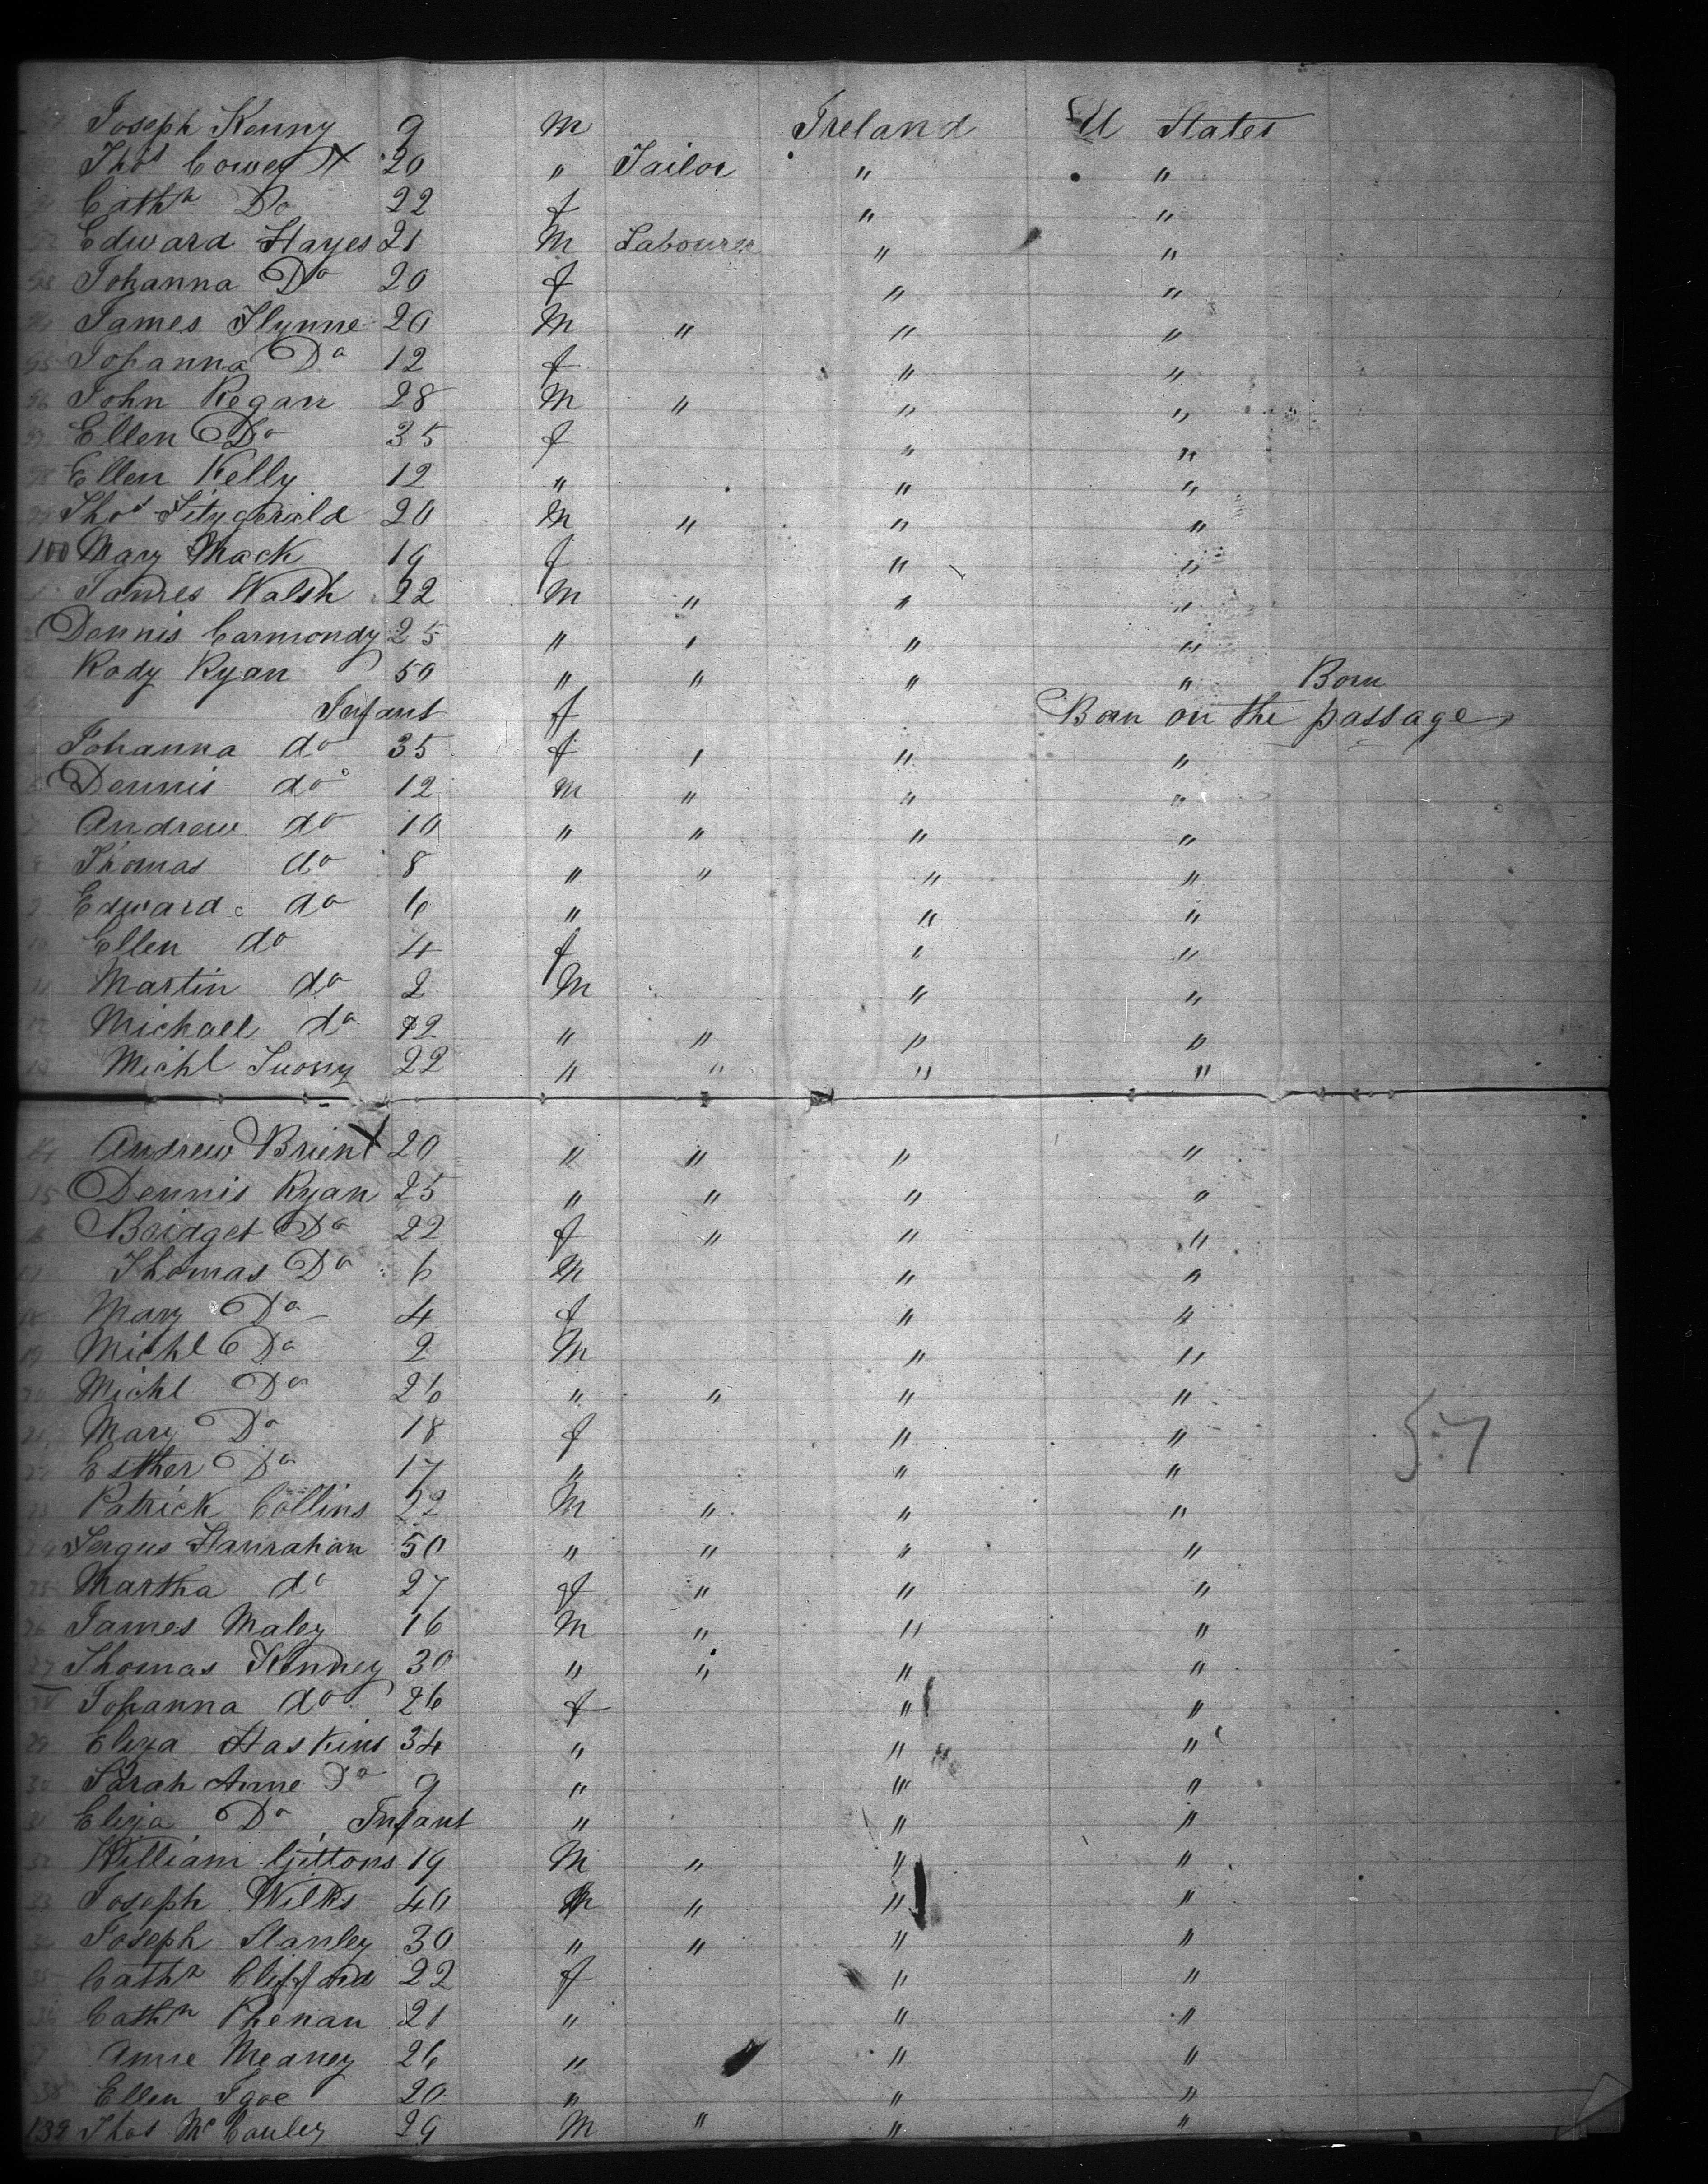 Joseph Kenny 9 m Ireland U States
Thos X 20 " Tailor " "
Cathn Do 22 f " "
Edward Hayes 21 M Labourer " "
93 Johanna Do 20 f " "
94 James Flynne 20 M " " "
95 Johanna Do 12 f " "
96 John Regan 28 M " " "
97 Ellen Do 35 f " "
98 Ellen Kelly 12 " " "
99 Thos Fitzgerald 20 M " " "
100 Mary Mack 19 f " "
1 James Walsh 22 M " " "
2 Dennis Carmondy 25 " " " "
3 Rody Ryan 50 " " " " Born
4 Infant f Born on the passage
Johanna do 35 f " " "
6 Dennis do 12 m " " "
7 Andrew do 10 " " " "
8 Thomas do 8 " " " "
9 Edward do 6 " " "
10 Ellen do 4 f " "
11 Martin do 2 M " "
12 Michael do 12 " " " "
13 Michl 22 " " " "
14 Andrew Brien X 20 " " " "
15 Dennis Ryan 25 " " " "
16 Bridget Do 22 f " " "
17 Thomas Do 6 M " "
18 Mary Do 4 f " "
19 Michl Do 2 M " "
20 Michl Do 26 " " " "
21 Mary Do 18 f " "
22 Esther Do 17 " " "
23 Patrick Collins 22 M " " "
24 Fergus Hanrahan 50 " " " "
25 Martha do 27 f " " "
26 James Maley 16 M " " "
27 Thomas Kinney 30 " " " "
28 Johanna do 26 f " "
29 Eliza Haskins 34 " " "
30 Sarah Anne Do 9 " " "
31 Eliza Do Infant " " "
32 William Gittons 19 M " " "
33 Joseph Wilks 40 M " " "
34 Joseph Stanley 30 " " " "
35 Cathn Clifford 22 f " "
36 Cathn Phenan 21 " " "
7 Anne Meaney 26 " " "
38 Ellen Igoe 20 " " "
139 Thos McCauley 29 M " " "